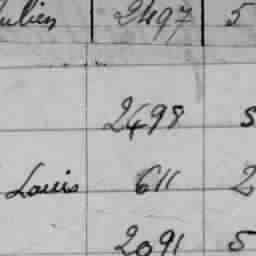 2497 5
2498 5
Louis 611 2
2091 5